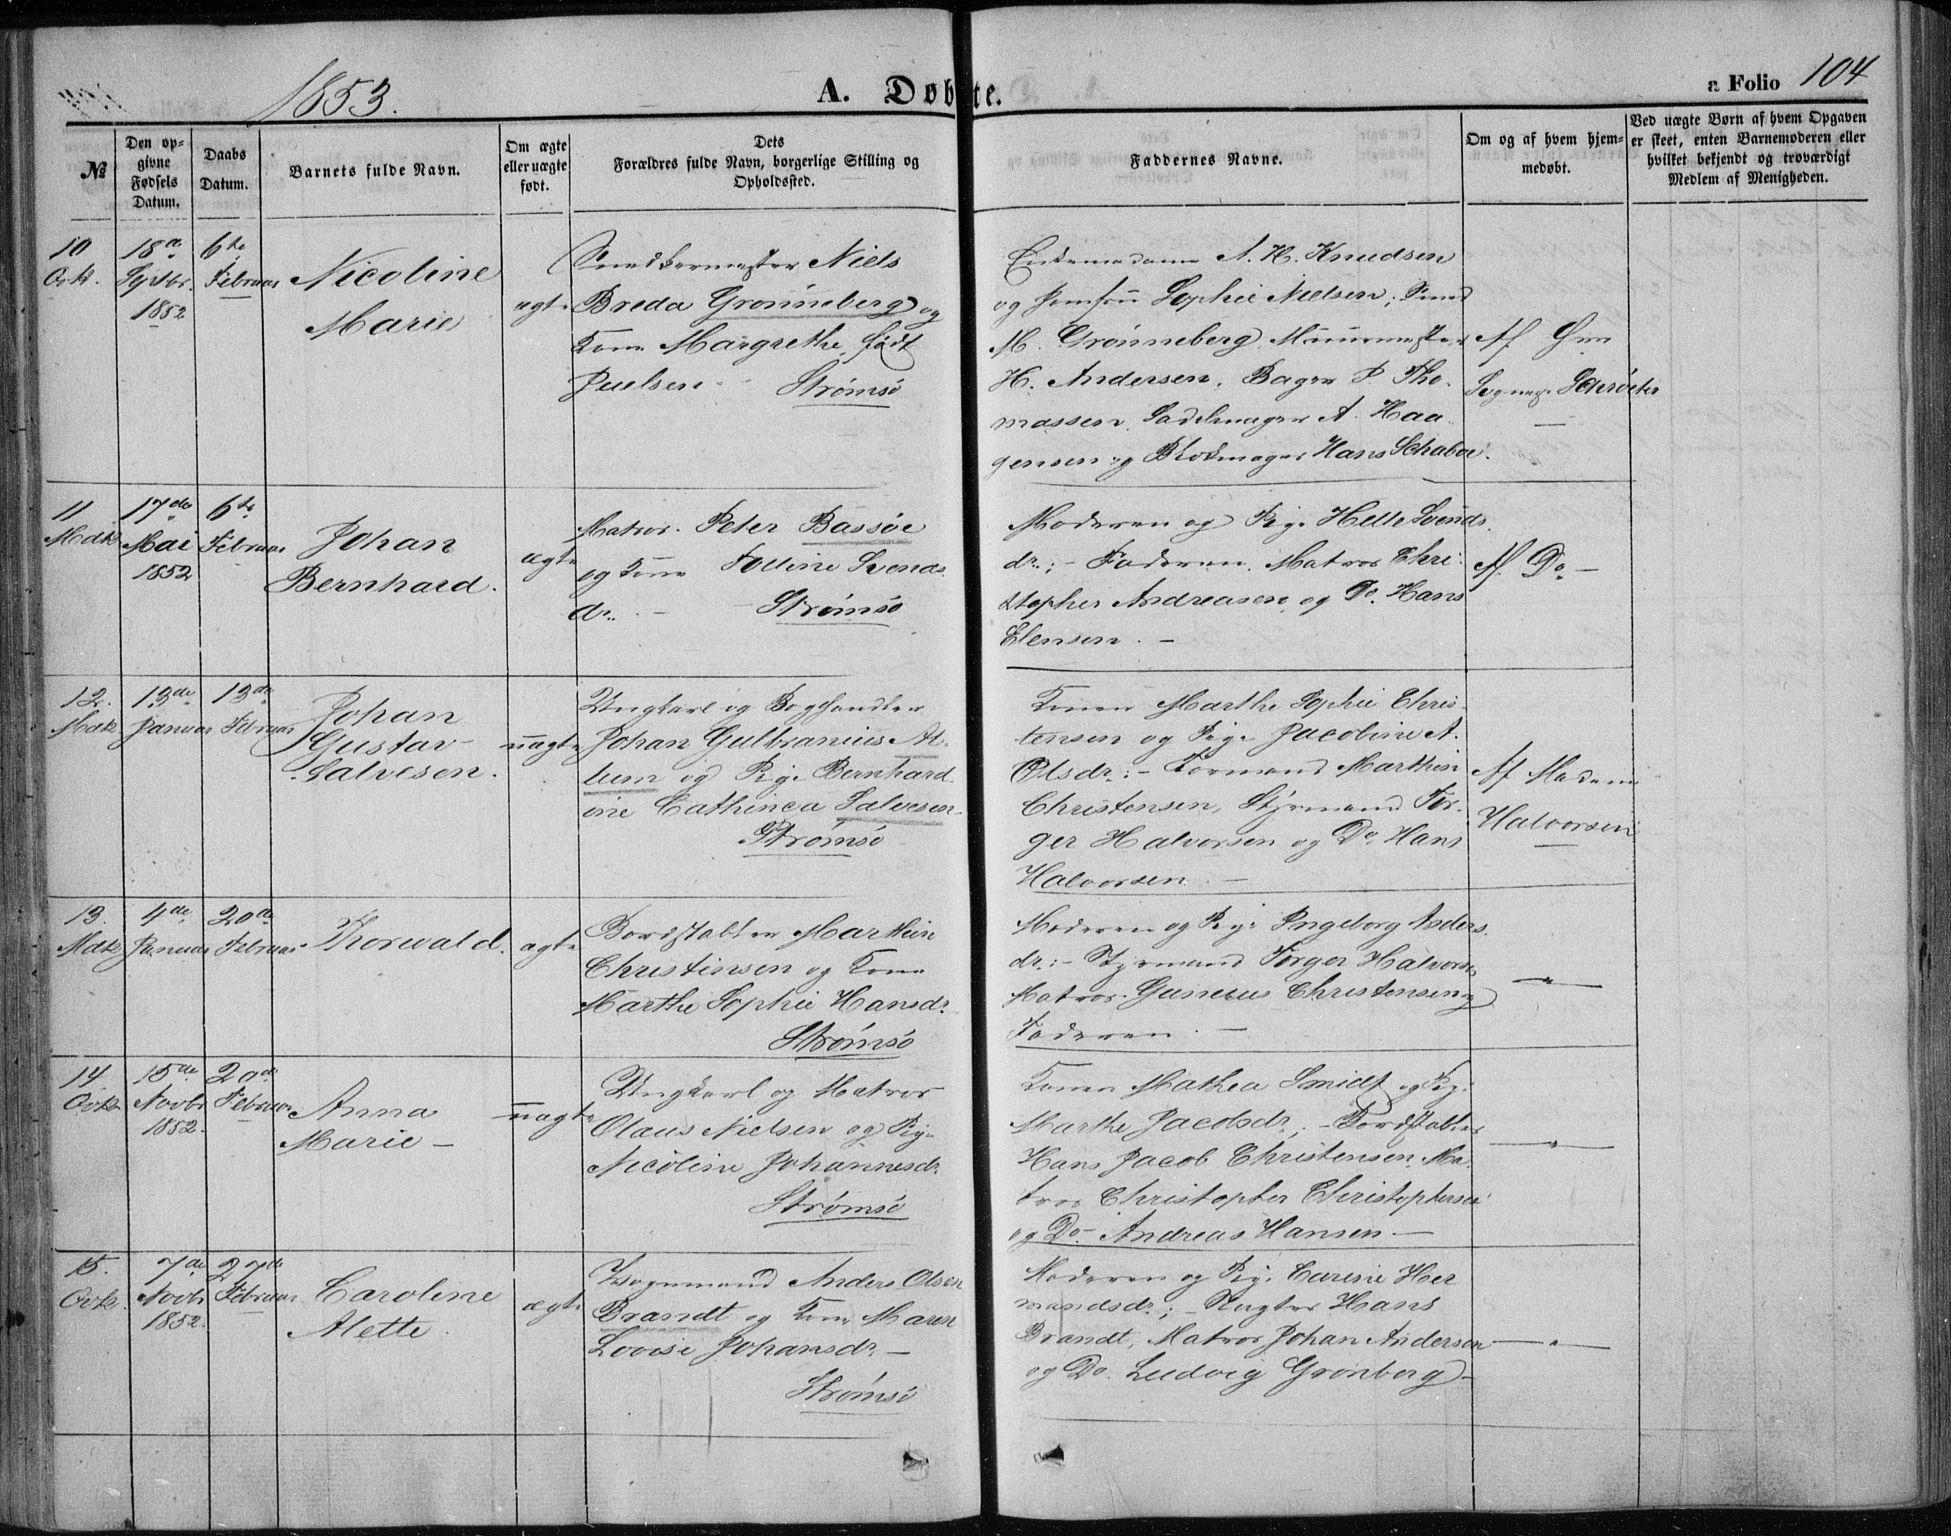 1853.
A. Døbte.
a Folio 104
№
Den op-
givne
Fødsels
Datum.
Daabs
Datum.
Barnets fulde Navn.
Om ægte
eller uægte
født.
Dets
Forældres fulde Navn, borgerlige Stilling og
Opholdssted.
Faddernes Navne.
Om og af hvem hjem-
medøbt.
Ved uægte Børn af hvem Opgaven
er skeet, enten Barnemoderen eller
hvilket bekjendt og troværdigt
Medlem af Menigheden.
10
18de
Septbr
1852
6te
Februar
Nicoline
Marie
ægte
Snedkermester Niels
Breda Grønneberg og
Kone Margrethe født
Juelsen
Strømsø
Enkemadame A. H. Knudsen
og Jomfru Sophie Nielsen; Smed
M. Grønneberg, Muurmester
H. Andersen, Bager P. Tho-
massen, Sadelmager A. Haa-
gensen og Blokmager Hans Schaboe.
Af Hrr
Sognepr. Schrøeter
11
Mdk
17de
Mai
1852
6te
Februar
Johan
Bernhard.
ægte
Matros Peter Bassøe
og Kone Svends
dr. -
Strømsø
Moderen og Pige Helle Svends
dr.; - Faderen, Matros Chri-
stopher Andreasen og Do. Hans
Elensen. -
Af Do -
12.
Mdk
13de
Januar
13de
Februar
Johan
Gustav
Salvesen.
uægte
Ungkarl og Boghandler
Johan Gulbranius Al-
bum og Pige Bernhard
ine Cathinca Salvesen
Strømsø
Konen Marthe Sophie Chris-
tensen og Pige Jacobine A.
Olsdr.: - Formand Marthin
Christensen, Styrmand Tor-
ger Halvorsen og Do. Hans
Halvorsen. -
Af Madame
Halvorsen
13.
Mdk
4de
Januar
20de
Februar
Thorwald.
ægte
Bordstabler Marthin
Christensen og Kone
Marthe Sophie Hansdr.
Strømsø
Moderen og Pige Ingeborg Anders
dr.: - Styrmand Torger Halvors.
Matros Christensen og
Faderen. -
14
15de
Novbr
1852.
20de
Februar
Anna
Marie -
uægte
Ungkarl og Matros
Olaus Nielsen og Pige
Nicoline Johannesdr.
Strømsø
Konen Mathea Smidt og Pige
Marthe Jacobsdr.; - Bordstabler
Hans Jacob Christensen, Ma-
tros Christopher Christophersen
og Do. Andreas Hansen. -
15.
7de
Novbr
1852.
27de
Februar
Caroline
Alette.
ægte
Vognmand Anders Olsen
Brandt og Kone Maren
Lovise Johansdr. -
Strømsø
Moderen og Pige Carine Her
mandsdr.; - Hans
Brandt, Matros Johan Andersen
og Do. Ludvig Grønberg -